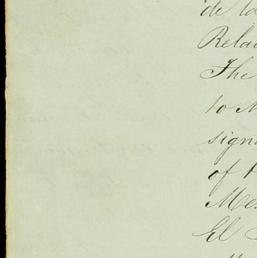 de la
Relac
The
to M
sign
of t
Me
El